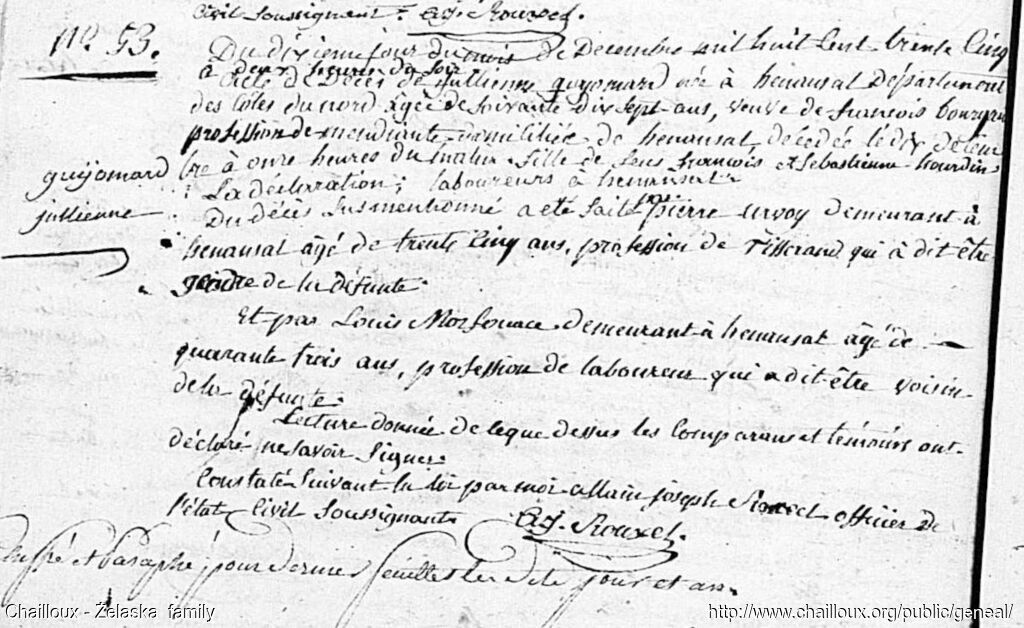 Civil Soussignant. A.J. Rouxel.
N.° 53.
Du dixieme jour du mois de Decembre mil huit Cent trente Cinq
à deux heures du soir
Acte de Décès de Jullienne guyomard née à henansal Département
des Cotes du nord agée de soixante dix sept ans, veuve de francois
profession de mendiante domiciliée de henansal, decedée le dix decem
bre à onze heures du matin fille de feus francois et Sebastienne hourdin
guyomard
jullienne
La déclaration; laboureurs à henansal
Du décès susmentionné a eté faite par pierre urvoy demeurant à
henansal âgé de trente Cinq ans, profession de Tisserand qui à dit être
gendre de la défunte.
Et par Louis Morfouace demeurant à henansal âgé de
quarante trois ans, profession de laboureur qui a dit être voisin
de la défunte.
Lecture donnée de ceque dessus les Comparans et temoins ont
déclaré ne savoir Signer
Constaté Suivant la loi par moi allain joseph Rouxel officier de
l'état Civil Soussignant A.J. Rouxel.
et Paraphé, pour dernier feuillet les dits jour et an.
Chailloux - Zelaska family
http://www.chailloux.org/public/geneal/